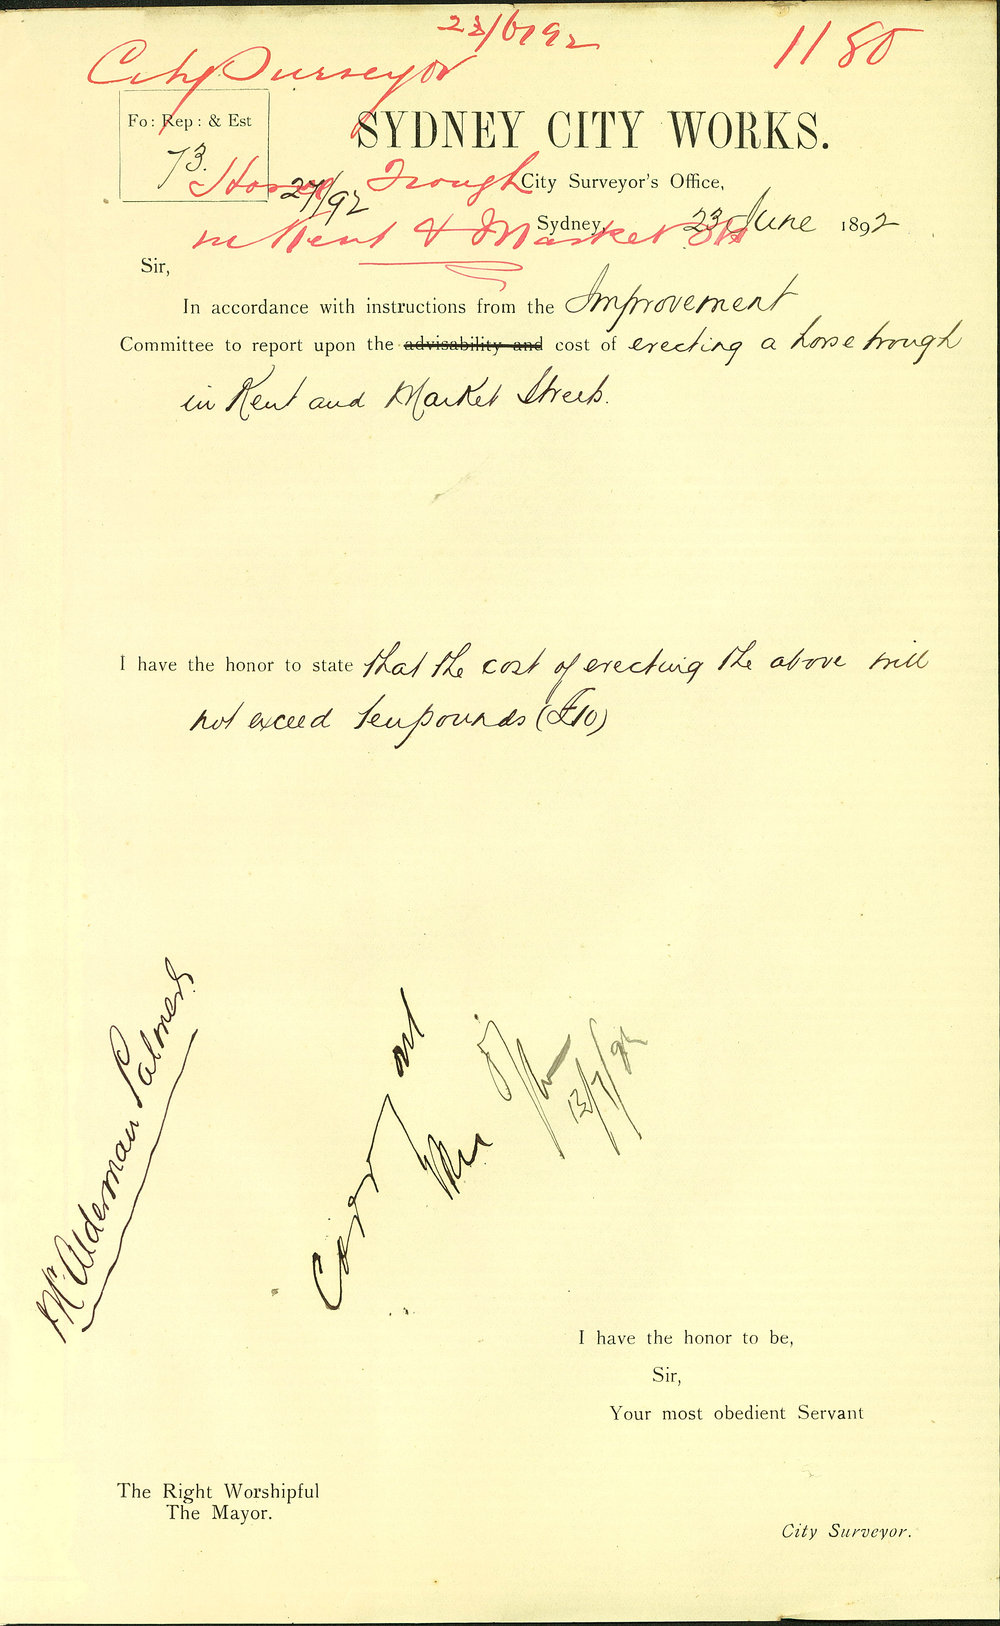 23/6/92
1180
City Surveyor
Fo: Rep: & Est
73.
27/92
SYDNEY CITY WORKS.
Horse Trough
City Surveyor's Office,
in Kent & Market Sts
Sydney, 23 June 1892
Sir,
In accordance with instructions from the Improvement
Committee to report upon the advisability and cost of erecting a horse trough
in Kent and Market Streets.
I have the honor to state that the cost of erecting the above will
not exceed ten pounds (£10)
Mr Alderman Palmer
13/7/92
I have the honor to be,
Sir,
Your most obedient Servant
The Right Worshipful
The Mayor.
City Surveyor.